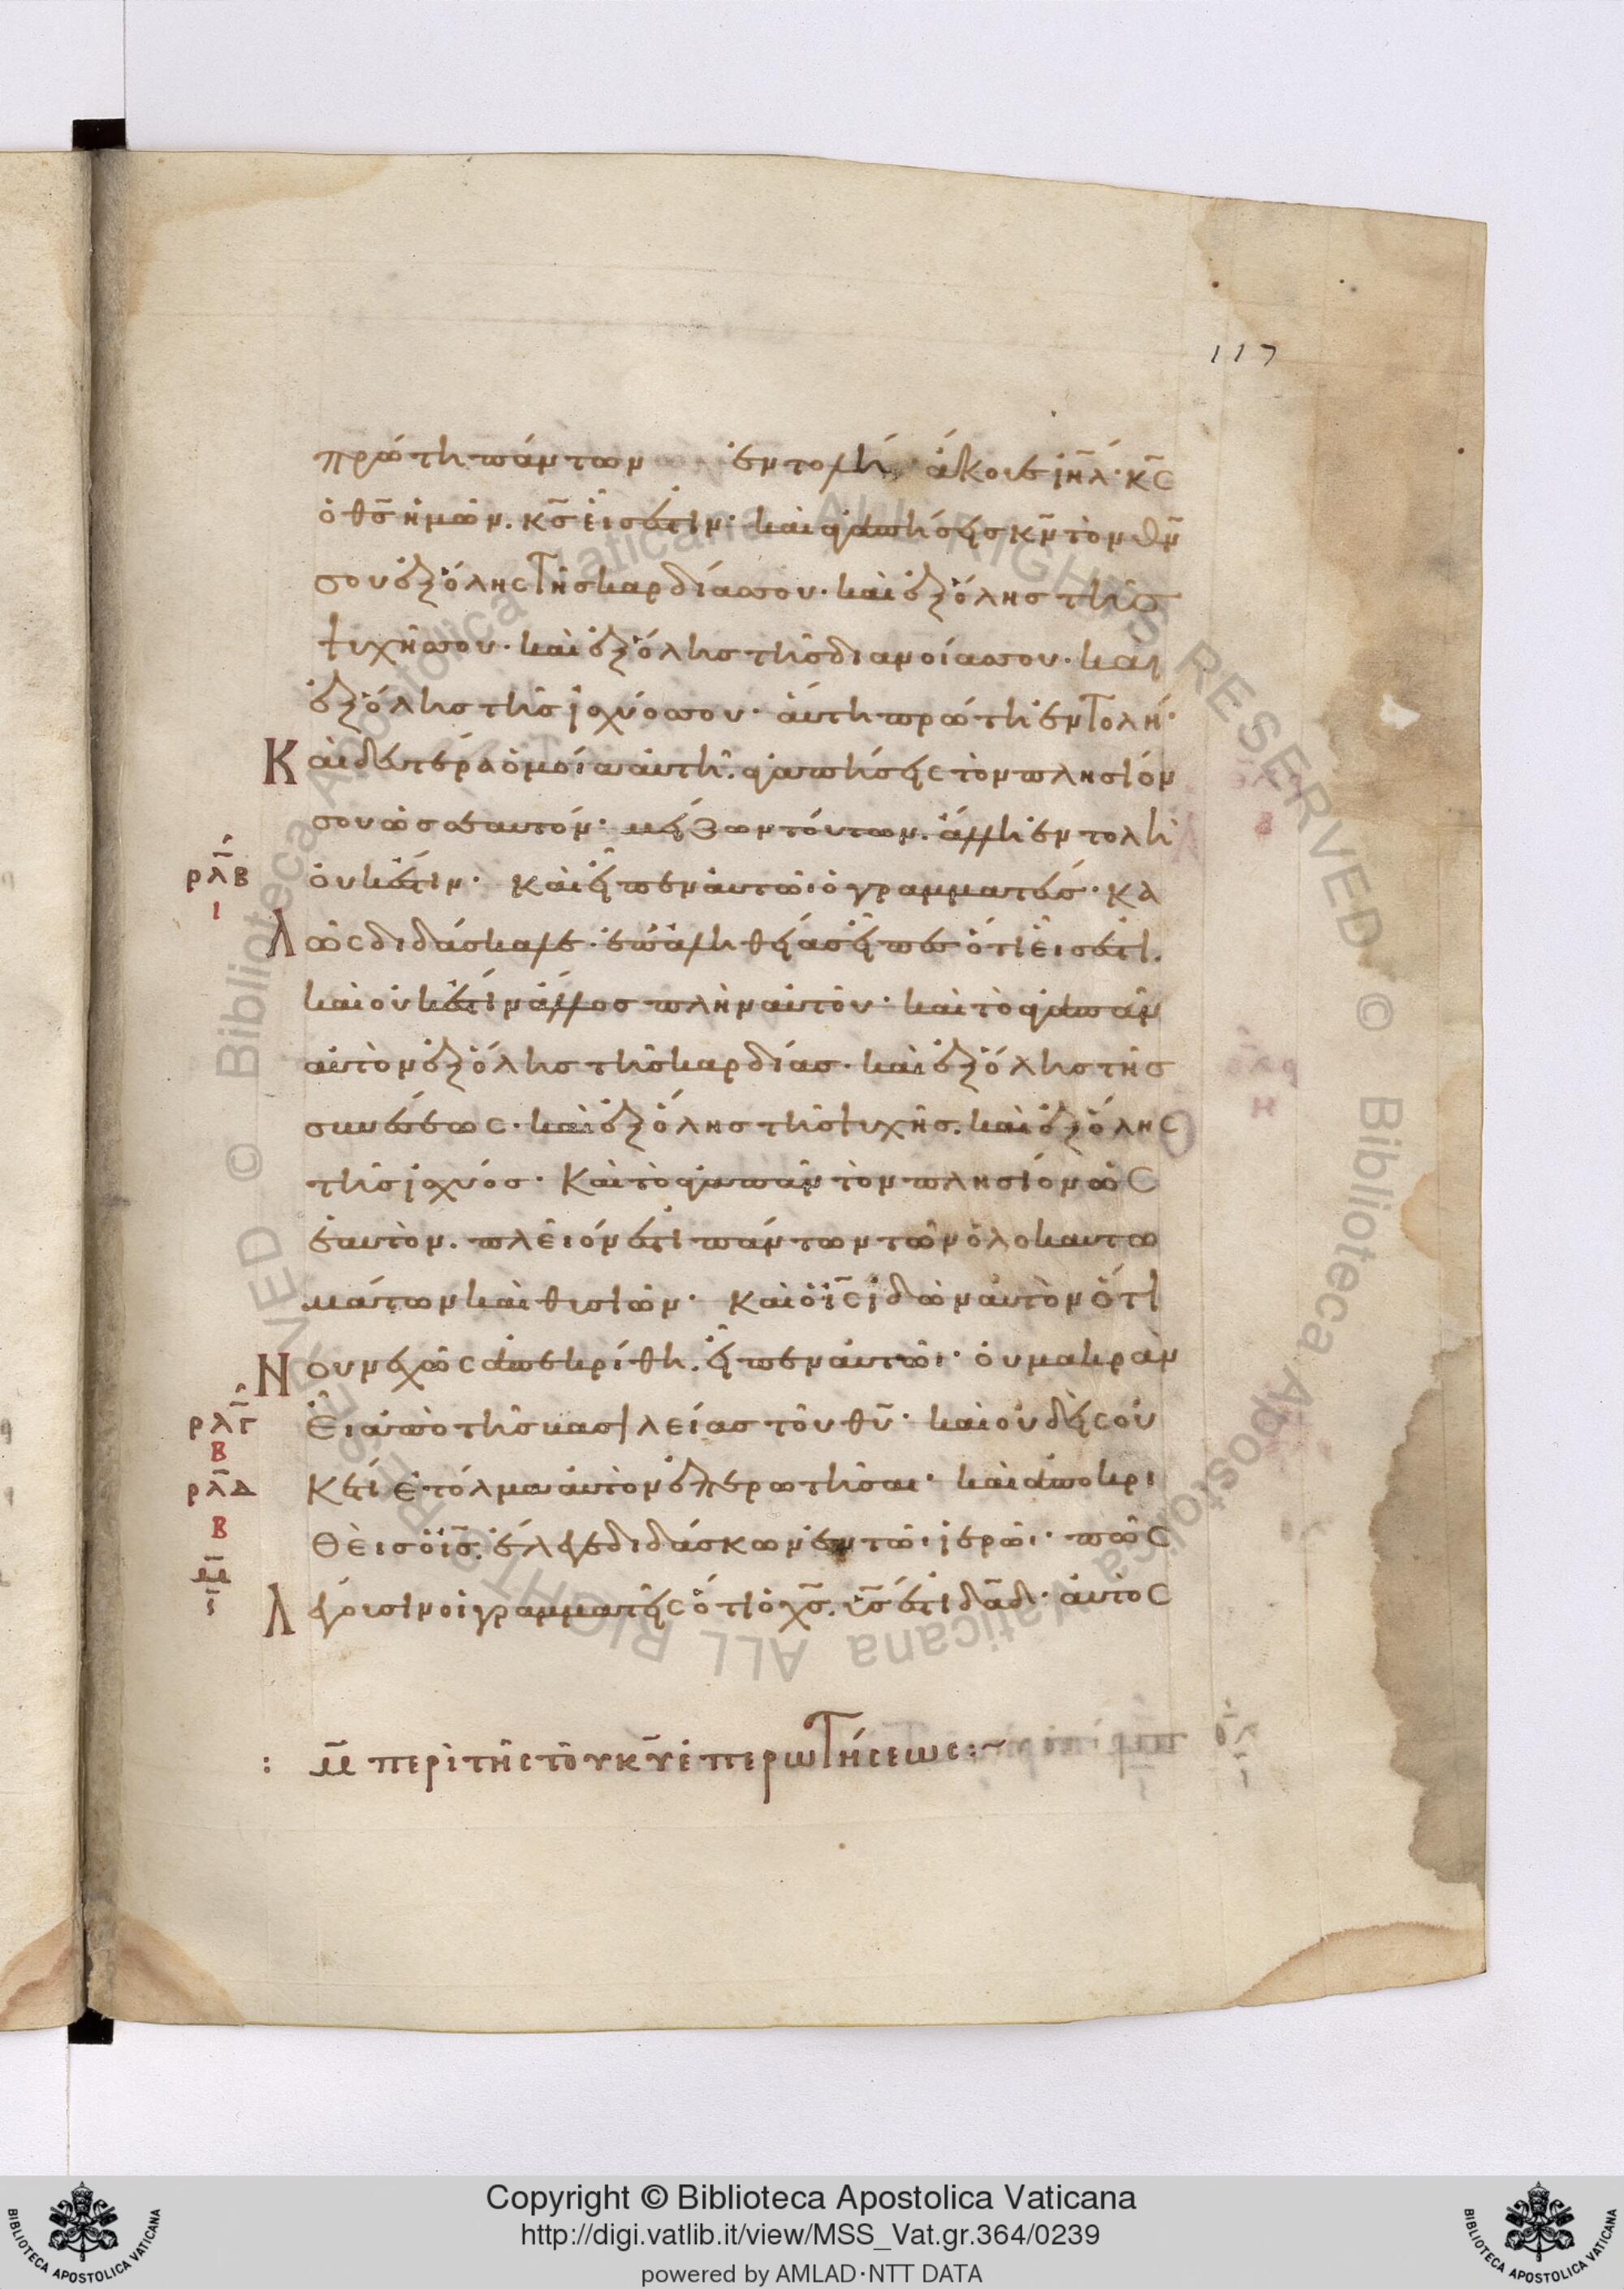 117
πρώτη πάντων ἐντολή· ἄκουε ἰη̅λ· κ̅ς
ὁ θ̅ς ἡμῶν. κ̅ς εἷς ἐστιν· καὶ ἀγαπήσεις κ̅ν τὸν θ̅ν
σου ἐξ ὅλης τῆς καρδίας σου· καὶ ἐξ ὅλης τῆς
ψυχῆς σου· καὶ ἐξ ὅλης τῆς διανοίας σου· καὶ
ἐξ ὅλης τῆς ἰσχύος σου· αὕτη πρώτη ἐντολή·
Καὶ δευτέρα ὁμοία αὐτῇ. ἀγαπήσεις τὸν πλησίον
σου ὡς σεαυτόν· μείζων τούτων. ἄλλη ἐντολὴ
ρλ̅β
Ι
οὐκ ἔστιν· καὶ εἶπεν αὐτῶι ὁ γραμματεύς· κα
Λῶς διδάσκαλε· ἐπ' ἀληθείας εἶπας ὅτι εἷς ἐστι.
καὶ οὐκ ἔστιν ἄλλος πλὴν αὐτοῦ· καὶ τὸ ἀγαπᾶν
αὐτὸν ἐξ ὅλης τῆς καρδίας· καὶ ἐξ ὅλης τῆς
συνέσεως· καὶ ἐξ ὅλης τῆς ψυχῆς. καὶ ἐξ ὅλης
τῆς ἰσχύος· καὶ τὸ ἀγαπᾶν τὸν πλησίον ὡς
ἑαυτὸν. πλεῖόν ἐστι πάντων τῶν ὁλοκαυτω
μάτων καὶ θυσιῶν· καὶ ὁ ι̅ς ἰδὼν αὐτὸν ὅτι
Νουνεχῶς ἀπεκρίθη. εἶπεν αὐτῶι· οὐ μακρὰν
ρλ̅γ
Β
εἶ ἀπὸ τῆς βασιλείας τοῦ θ̅υ· καὶ οὐδεὶς οὐ
ρλ̅δ
Β
κέτι ἐτόλμα αὐτὸν ἐπερωτῆσαι· καὶ ἀποκρι
θεὶς ὁ ι̅ς. ἔλεγε διδάσκων ἐν τῶι ἱερῶι· πῶς
με̅
Λέγουσιν οἱ γραμματεῖς ὅτι ὁ χ̅ς. υ̅ς ἐστι δα̅δ· αὐτὸς
: με̅ περὶ τῆς τοῦ κ̅υ ἐπερωτήσεως:~
Copyright © Biblioteca Apostolica Vaticana
http://digi.vatlib.it/view/MSS_Vat.gr.364/0239
powered by AMLAD·NTT DATA
BIBLIOTECA APOSTOLICA VATICANA
BIBLIOTECA APOSTOLICA VATICANA
© Biblioteca Apostolica Vaticana ALL RIGHTS RESERVED © Biblioteca Apostolica Vaticana ALL RIGHTS RESERVED